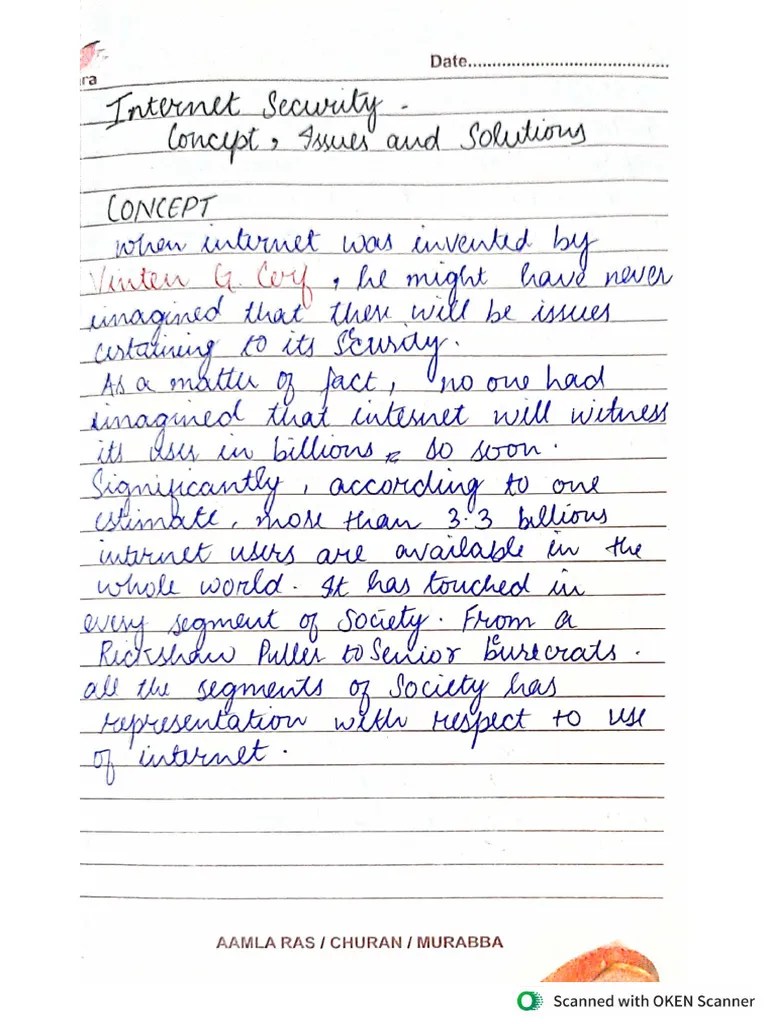 Date..........................................
ra
Internet Security -
Concept, Issues and Solutions
CONCEPT
when internet was invented by
Vinten G. Cerf, he might have never
imagined that there will be issues
certaining to its Security.
As a matter of fact, no one had
imagined that internet will witness
its user in billions so soon.
Significantly, according to one
estimate, more than 3.3 billions
internet users are available in the
whole world. It has touched in
every segment of Society. From a
Rickshaw Puller to Senior Burecrats.
all the segments of Society has
representation with respect to use
of internet.
AAMLA RAS / CHURAN / MURABBA
Scanned with OKEN Scanner